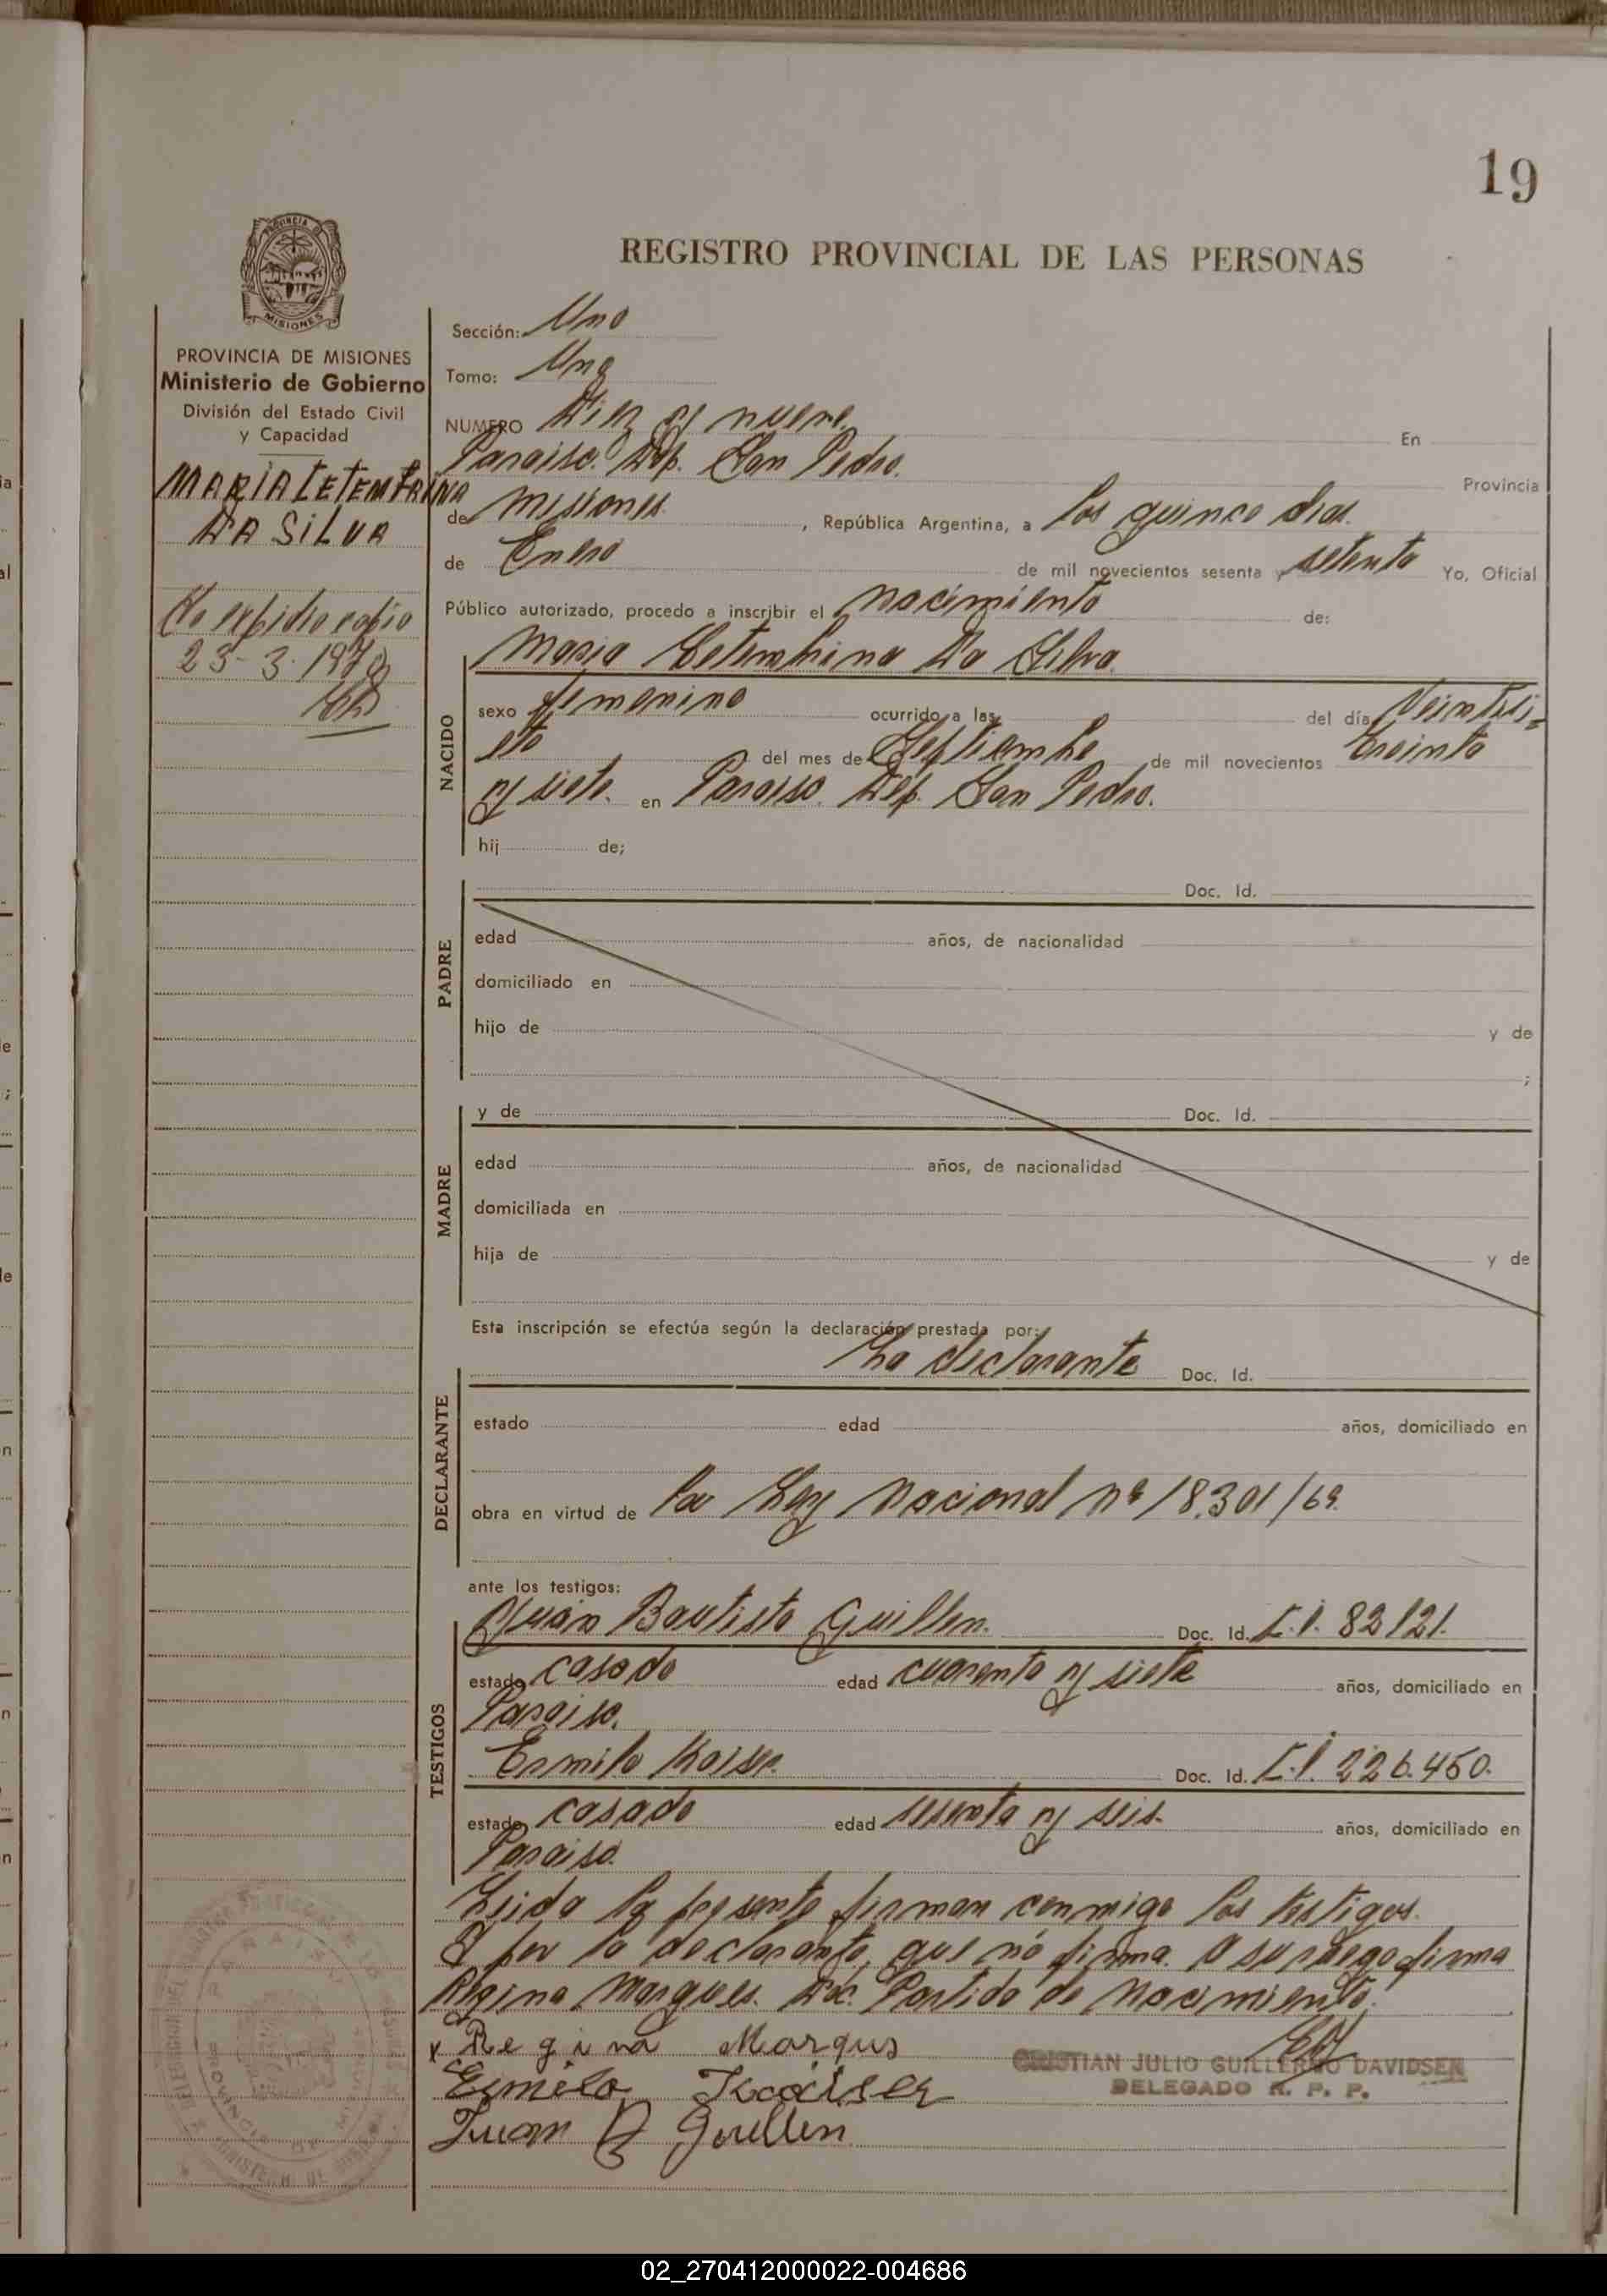 19
REGISTRO PROVINCIAL DE LAS PERSONAS
PROVINCIA DE MISIONES
Ministerio de Gobierno
División del Estado Civil
y Capacidad
MARIA LETEMBRINA
DA SILVA
Se expidio copia
23-3-1970
Sección: Uno
Tomo: Uno
NUMERO Diez y nueve. En
Paraiso. Dep. San Pedro. Provincia
de Misiones. , República Argentina, a los quince dias.
de Enero de mil novecientos sesenta y setenta Yo, Oficial
Público autorizado, procedo a inscribir el Nacimiento de:
NACIDO
Maria Setembrina Da Silva.
sexo femenino ocurrido a las del día Veintisi=
ete del mes de Septiembre de mil novecientos treinta
y siete. en Paraiso. Dep. San Pedro.
hij de;
PADRE
Doc. Id.
edad años, de nacionalidad
domiciliado en
hijo de y de
;
MADRE
y de Doc. Id.
edad años, de nacionalidad
domiciliada en
hija de y de
Esta inscripción se efectúa según la declaración prestada por:
DECLARANTE
La declarante Doc. Id.
estado edad años, domiciliado en
obra en virtud de la Ley Nacional nº 18.301/69.
ante los testigos:
TESTIGOS
Juan Bautista Guillen. Doc. Id. C.I. 82121.
estado casado edad cuarenta y siete años, domiciliado en
Paraiso.
Ermilo Kaiser. Doc. Id. C.I. 226.450.
estado casado edad sesenta y seis. años, domiciliado en
Paraiso.
Leida la presente firman conmigo los testigos.
Y por la declarante, que no firma. A su ruego firma
Regina Marques. Doc. Partida de Nacimiento.
x Regina Marqus
Ermilo Kaiser
Juan B Guillen
CRISTIAN JULIO GUILLERMO DAVIDSEN
DELEGADO R. P. P.
02_270412000022-004686